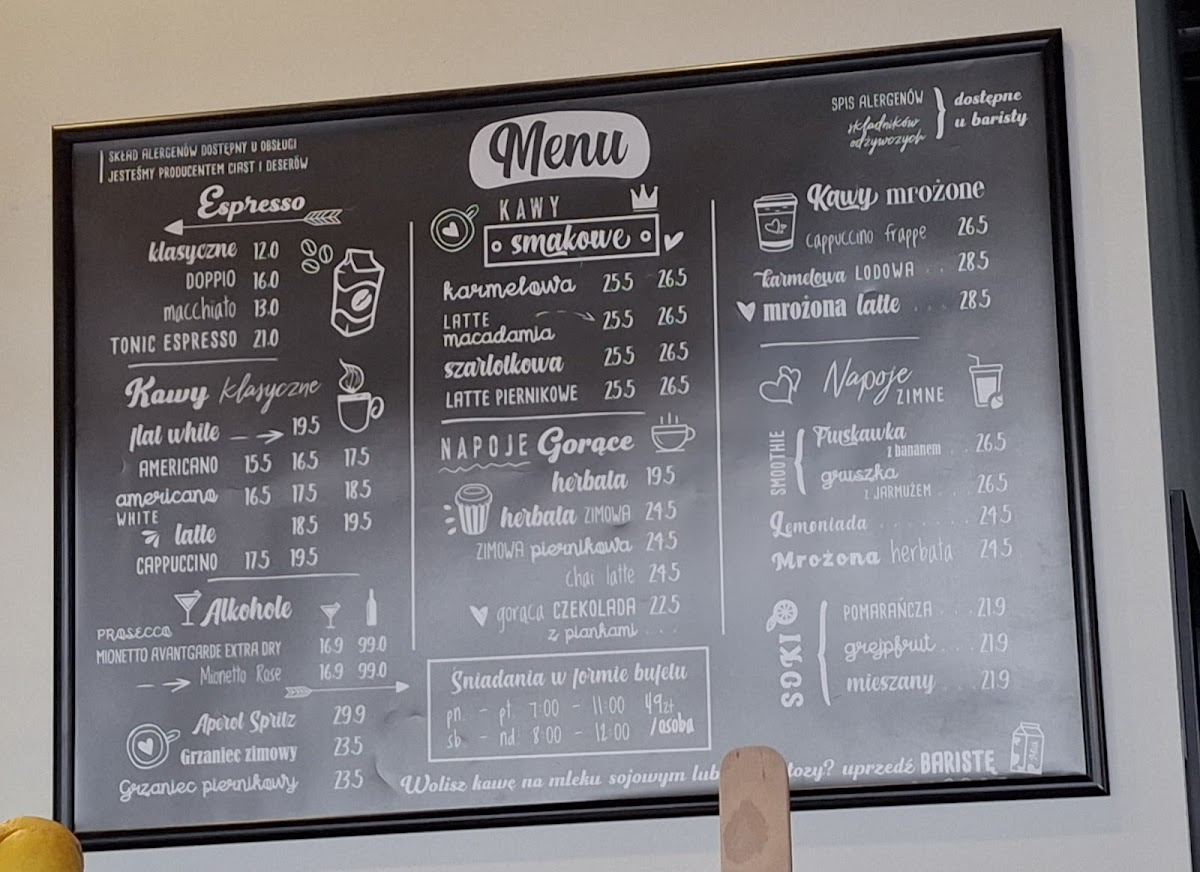 SKŁAD ALERGENÓW DOSTĘPNY U OBSŁUGI
JESTEŚMY PRODUCENTEM CIAST I DESERÓW
Espresso
klasyczne 12.0
DOPPIO 16.0
macchiato 13.0
TONIC ESPRESSO 21.0
Kawy klasyczne
flat white 19.5
AMERICANO 15.5 16.5 17.5
americano 16.5 17.5 18.5
WHITE
latte 18.5 19.5
CAPPUCCINO 17.5 19.5
Alkohole
PROSECCO
MIONETTO AVANTGARDE EXTRA DRY 16.9 99.0
Mionetto Rose 16.9 99.0
Aperol Spritz 29.9
Grzaniec zimowy 23.5
Grzaniec piernikowy 23.5
Menu
KAWY
smakowe
karmelowa 25.5 26.5
LATTE
macadamia 25.5 26.5
szarlotkowa 25.5 26.5
LATTE PIERNIKOWE 25.5 26.5
NAPOJE Gorące
herbata 19.5
herbata ZIMOWA 24.5
ZIMOWA piernikowa 24.5
chai latte 24.5
gorąca CZEKOLADA 22.5
z piankami ....
Śniadania w formie bufetu
pn. - pt. 7:00 - 11:00 49zł
sb. - nd. 8:00 - 12:00 /osoba
SPIS ALERGENÓW
składników
odżywczych
dostępne
u baristy
Kawy mrożone
cappuccino frappe 26.5
karmelowa LODOWA .. 28.5
mrożona latte ... 28.5
Napoje
ZIMNE
SMOOTHIE
Truskawka
z bananem .. 26.5
gruszka
z JARMUŻEM ... 26.5
Lemoniada ........ 24.5
Mrożona herbata 24.5
SOKI
POMARAŃCZA ... 21.9
grejpfrut ... 21.9
mieszany ... 21.9
Wolisz kawę na mleku sojowym lub tozy? uprzedź BARISTĘ